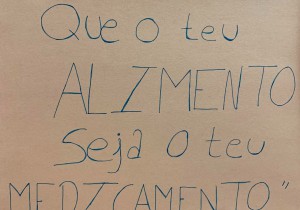 Que o teu
ALIMENTO
Seja o teu
MEDICAMENTO"